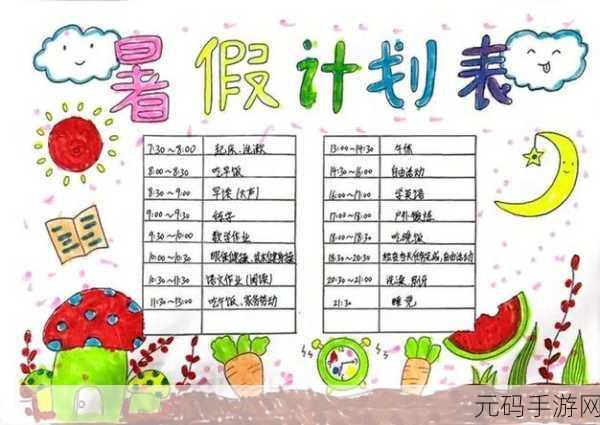 暑假计划表
7:30~8:00 起床、洗漱
8:00~8:30 吃早饭
8:30~9:00 早读(大声)
9:00~9:30 练字
9:30~10:00 数学作业
10:00~10:30 眼保健操、
10:30~11:30 语文作业(阅读)
11:30~13:00 吃午饭、家务劳动
13:00~14:30 午休
14:30~16:00 自由活动
16:00~17:00 学英语
17:00~18:00 户外锻炼
18:00~18:30 吃晚饭
18:30~20:30 自由活动
20:30~21:00 洗澡
21:30 睡觉
元码手游网